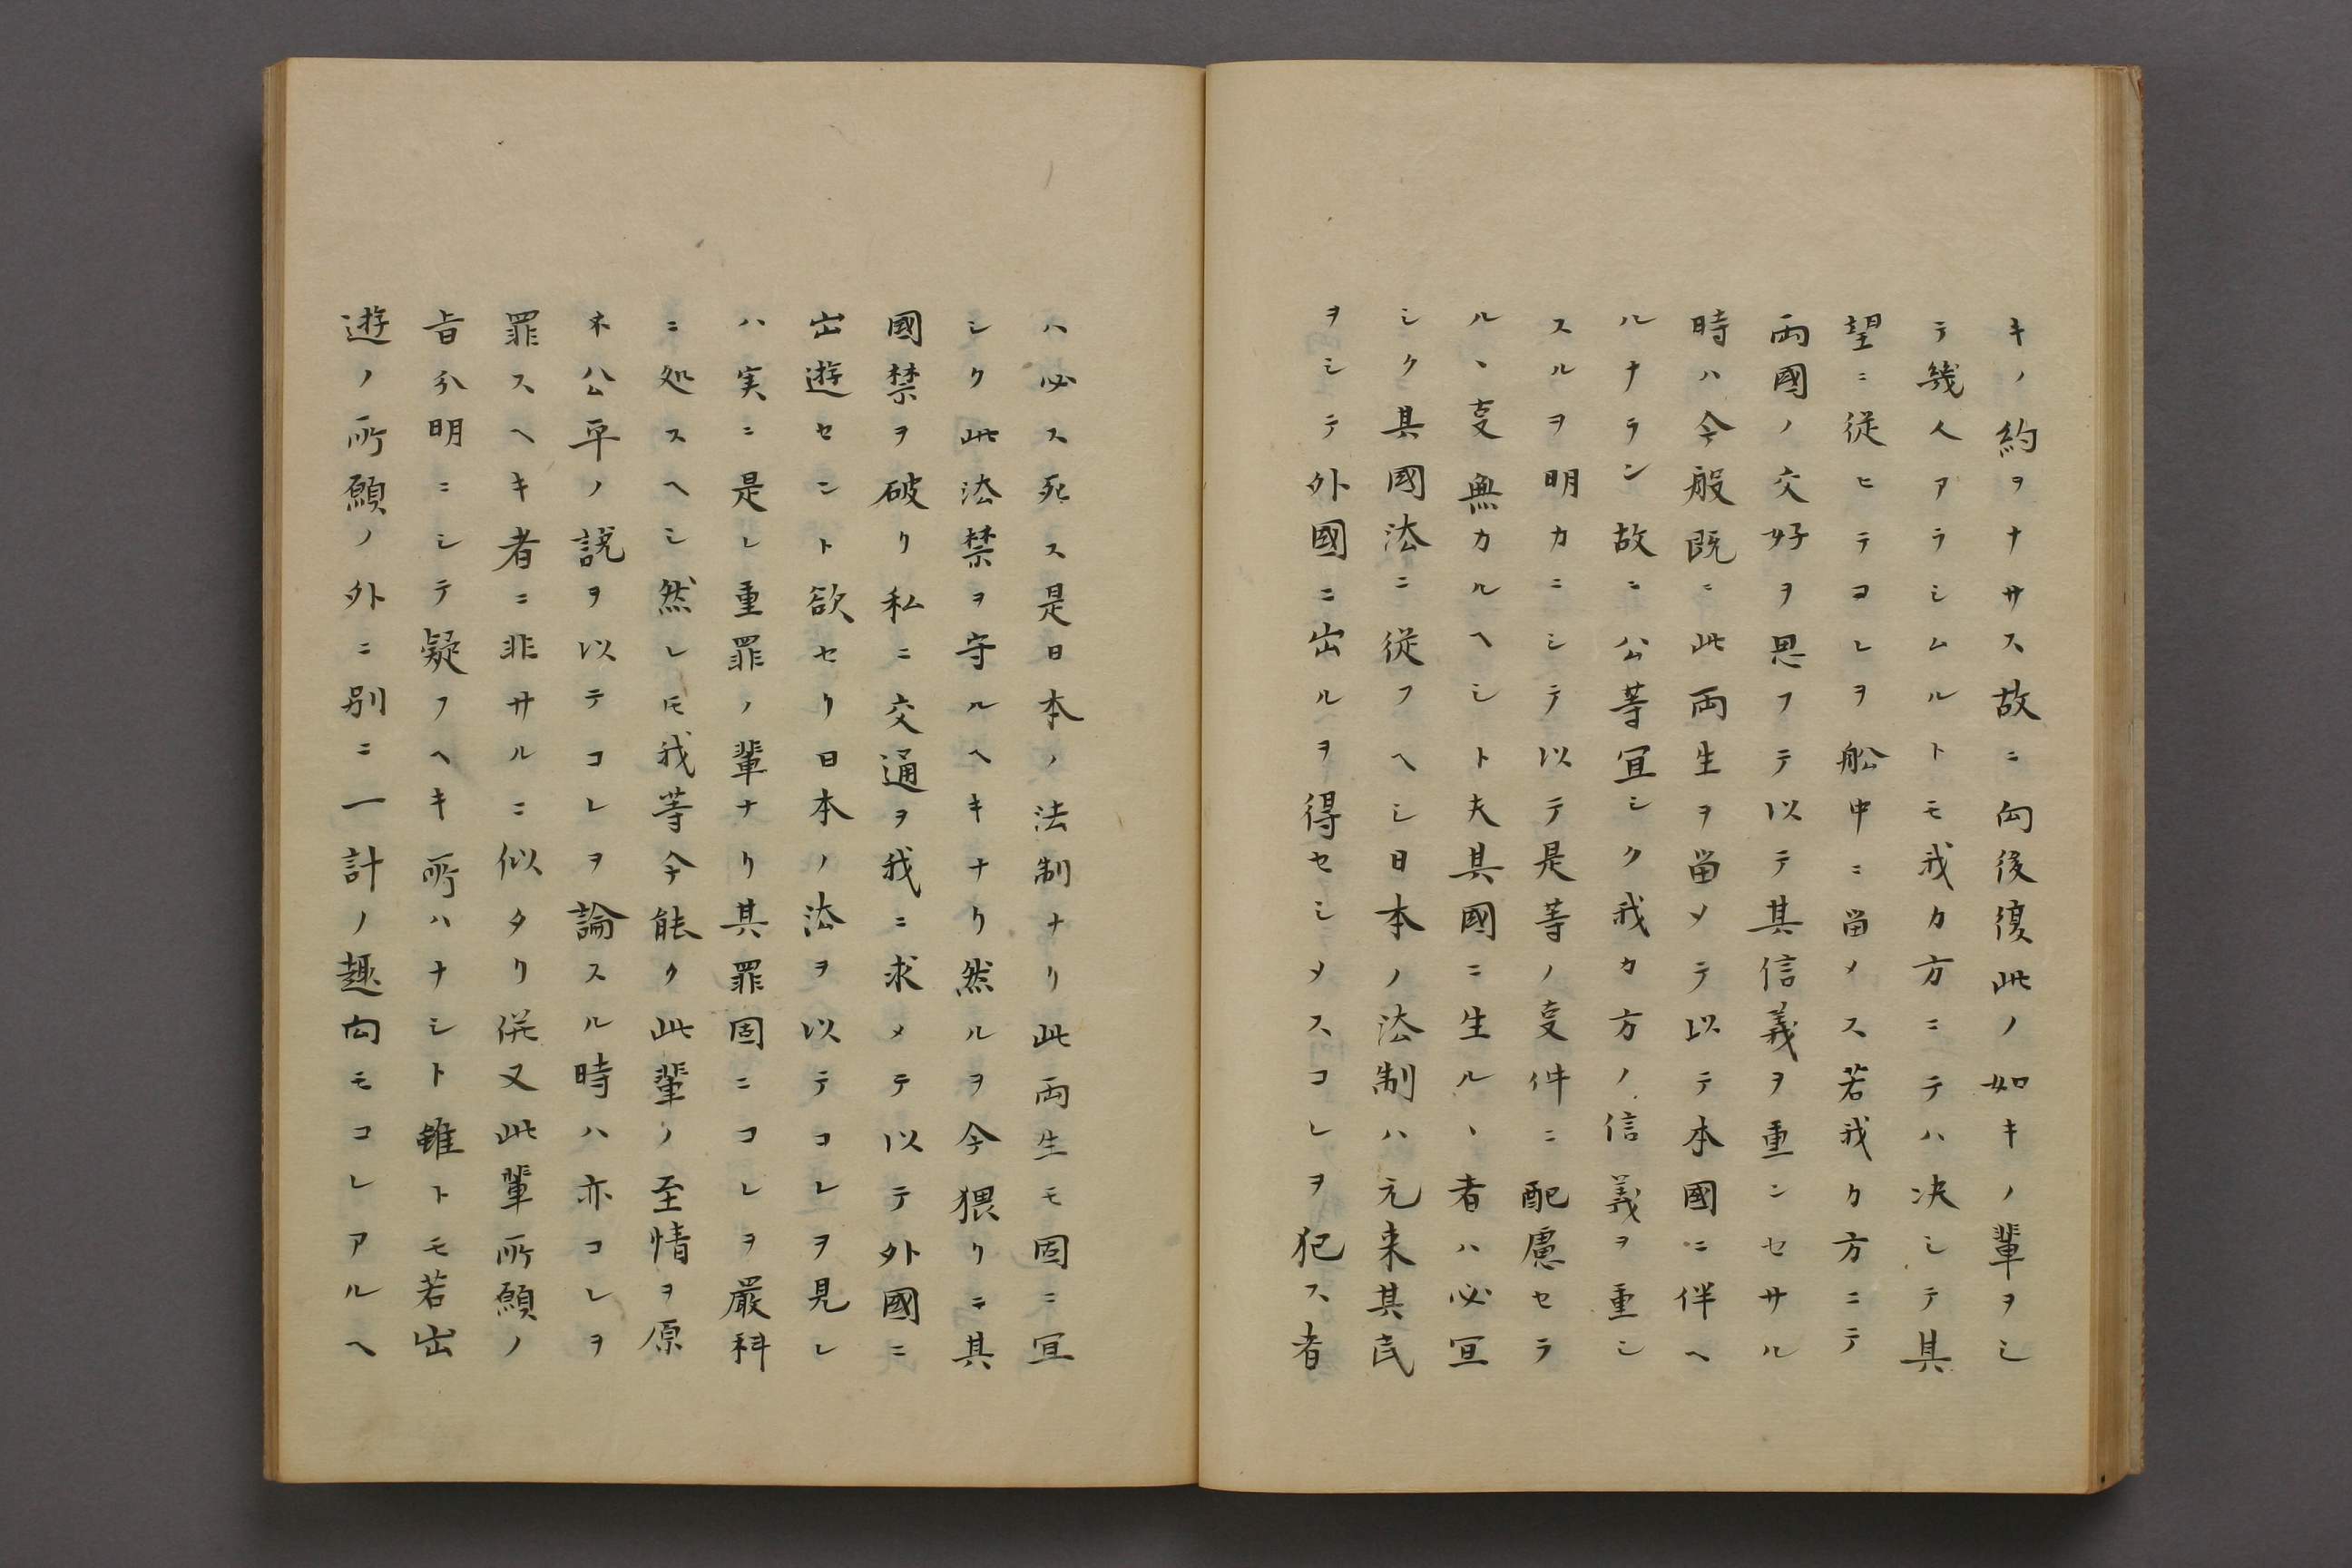 キノ約ヲナサス故ニ向後復此ノ如キノ輩ヲシ
テ幾人アラシムルトモ我カ方ニテハ决シテ其
望ニ従ヒテコレヲ舩中ニ畄メス若我カ方ニテ
両國ノ交好ヲ思フテ以テ其信義ヲ重ンセサル
時ハ今般既ニ此両生ヲ畄メテ以テ本國ニ伴ヘ
ルナラン故ニ公等宜シク我カ方ノ信義ヲ重シ
スルヲ明カニシテ以テ是等ノ叓件ニ配慮セラ
ルヽ叓無カルヘシト夫其國ニ生ルヽ者ハ必宜
シク其國法ニ従フヘシ日本ノ法制ハ元来其民
ヲシテ外國ニ出ルヲ得セシメスコレヲ犯ス者
ハ必ス死ス是日本ノ法制ナリ此両生モ固ニ宜
シク此法禁ヲ守ルヘキナリ然ルヲ今猥リニ其
國禁ヲ破リ私ニ交通ヲ我ニ求メテ以テ外國ニ
出遊セント欲セリ日本ノ法ヲ以テコレヲ見レ
ハ実ニ是レ重罪ノ輩ナリ其罪固ニコレヲ嚴科
ニ処スヘシ然レ𪜈我等今能ク此輩ノ至情ヲ原
ネ公平ノ説ヲ以テコレヲ論スル時ハ亦コレヲ
罪スヘキ者ニ非サルニ似タリ併又此輩所願ノ
旨分明ニシテ疑フヘキ所ハナシト雖トモ若出
遊ノ所願ノ外ニ別ニ一計ノ趣向モコレアルヘ